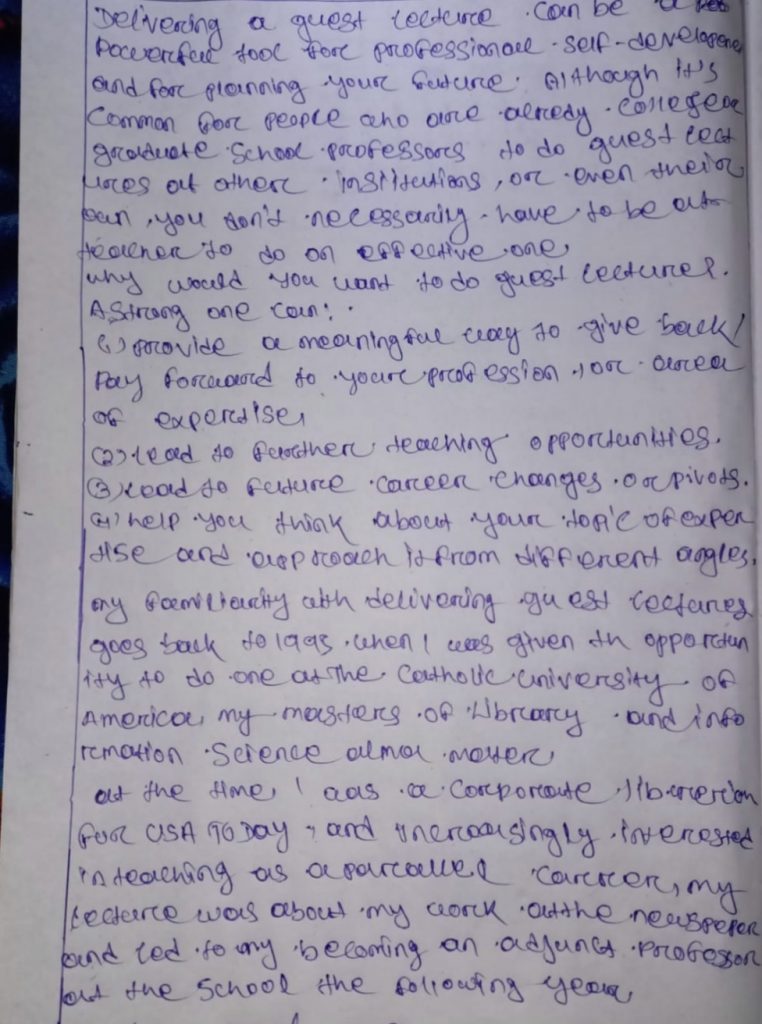 Delivering a guest lecture can be a
Powerful tool for professional self-developme
and for planning your future. Although it's
Common for people who are alredy college or
graduate School professors to do guest lect
ures at other institutions, or even their
own, you don't necessarily have to be at
teacher to do an effective one,
why would you want to do guest lecture?.
A strong one can:
(1) provide a meaningful way to give back/
Pay forward to your profession, or area
of expertise,
(2) lead to further teaching opportunities.
(3) lead to future career changes or pivots.
(4) help you think about your topic of exper
tise and approach it from different angles.
my familiarity with delivering guest lectures
goes back to 1995 when I was given th opportun
ity to do one at the Catholic university of
America, my masters of library and info
rmation Science alma mater,
at the time, I was a corporate librerion
for USA TODAY, and increasingly interested
in teaching as a parallel carrier, my
lecture was about my work at the newspeper
and led to my becoming an adjunct professor
at the school the following year,